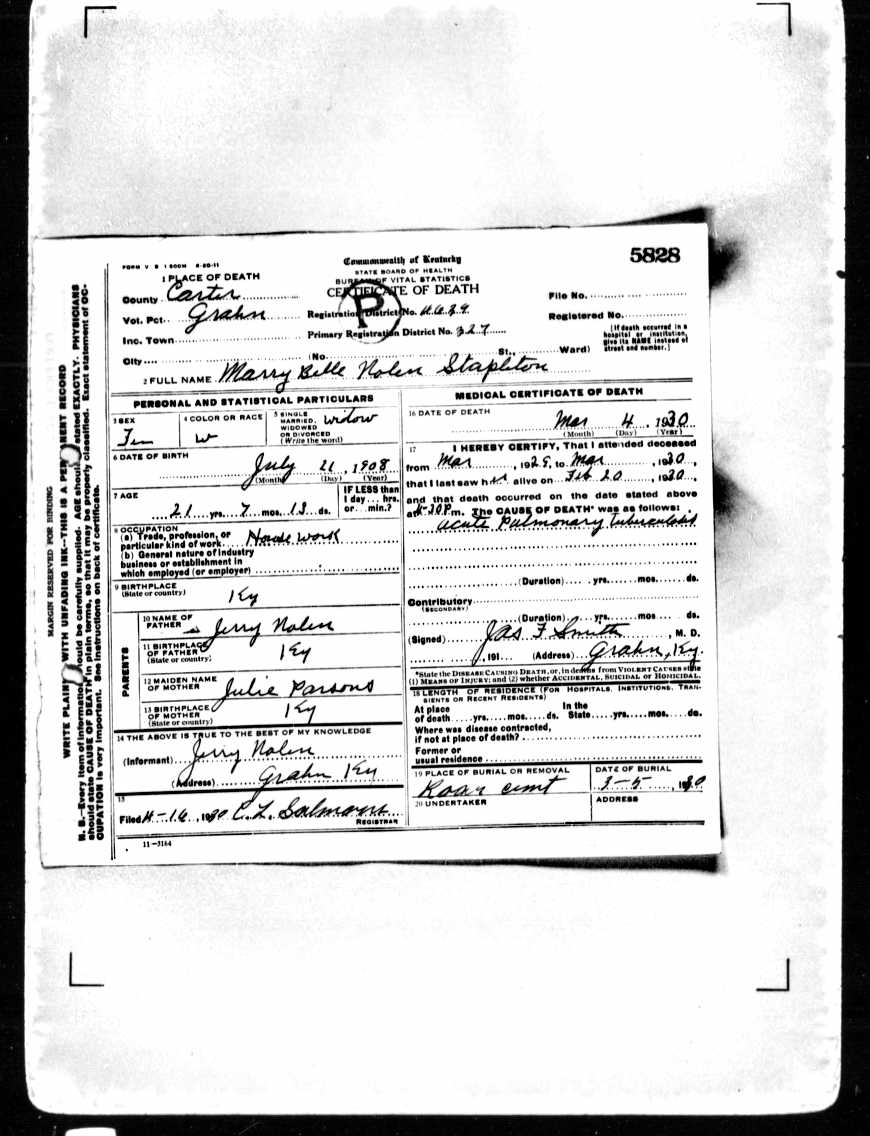 FORM V S 1 500M 6-20-11
Commonwealth of Kentucky
STATE BOARD OF HEALTH
BUREAU OF VITAL STATISTICS
CERTIFICATE OF DEATH
5828
P
1 PLACE OF DEATH
County Carter
Vot. Pct. Grahn
Inc. Town
City
Registration District No.
Primary Registration District No. 327
File No.
Registered No.
(No. St., Ward)
[If death occurred in a hospital or institution, give its NAME instead of street and number.]
2 FULL NAME Marry Belle Nolen Stapleton
PERSONAL AND STATISTICAL PARTICULARS
3 SEX Fem
4 COLOR OR RACE W
5 SINGLE MARRIED, WIDOWED OR DIVORCED (Write the word) Widow
6 DATE OF BIRTH July 21, 1908
(Month) (Day) (Year)
7 AGE 21 yrs. 7 mos. 13 ds.
IF LESS than 1 day ... hrs. or ... min.?
8 OCCUPATION
(a) Trade, profession, or particular kind of work House work
(b) General nature of industry business or establishment in which employed (or employer)
9 BIRTHPLACE (State or country) Ky
PARENTS
10 NAME OF FATHER Jerry Nolen
11 BIRTHPLACE OF FATHER (State or country) Ky
12 MAIDEN NAME OF MOTHER Julie Parsons
13 BIRTHPLACE OF MOTHER (State or country) Ky
14 THE ABOVE IS TRUE TO THE BEST OF MY KNOWLEDGE
(Informant) Jerry Nolen
(Address) Grahn Ky
15
Filed 4-16, 1930
REGISTRAR
11-3184
MEDICAL CERTIFICATE OF DEATH
16 DATE OF DEATH
Mar 4, 1930
(Month) (Day) (Year)
17 I HEREBY CERTIFY, That I attended deceased
from Mar, 1929, to Mar, 1930,
that I last saw her alive on Feb 20, 1930,
and that death occurred on the date stated above
at 4-30 P.m. The CAUSE OF DEATH* was as follows:
acute Pulmonary tuberculosis
(Duration) yrs. mos. ds.
Contributory
(SECONDARY)
(Duration) yrs. mos. ds.
(Signed) Jas F Smith, M. D.
, 191 (Address) Grahn, Ky.
*State the DISEASE CAUSING DEATH, or, in deaths from VIOLENT CAUSES state
(1) MEANS OF INJURY; and (2) whether ACCIDENTAL, SUICIDAL or HOMICIDAL.
18 LENGTH OF RESIDENCE (FOR HOSPITALS, INSTITUTIONS, TRANSIENTS OR RECENT RESIDENTS)
At place of death yrs. mos. ds. In the State yrs. mos. ds.
Where was disease contracted,
if not at place of death?
Former or
usual residence
19 PLACE OF BURIAL OR REMOVAL
DATE OF BURIAL
3-5, 1930
20 UNDERTAKER
ADDRESS
MARGIN RESERVED FOR BINDING
WRITE PLAINLY WITH UNFADING INK—THIS IS A PERMANENT RECORD
N. B.—Every item of information should be carefully supplied. AGE should be stated EXACTLY. PHYSICIANS
should state CAUSE OF DEATH in plain terms, so that it may be properly classified. Exact statement of OC-
CUPATION is very important. See instructions on back of certificate.